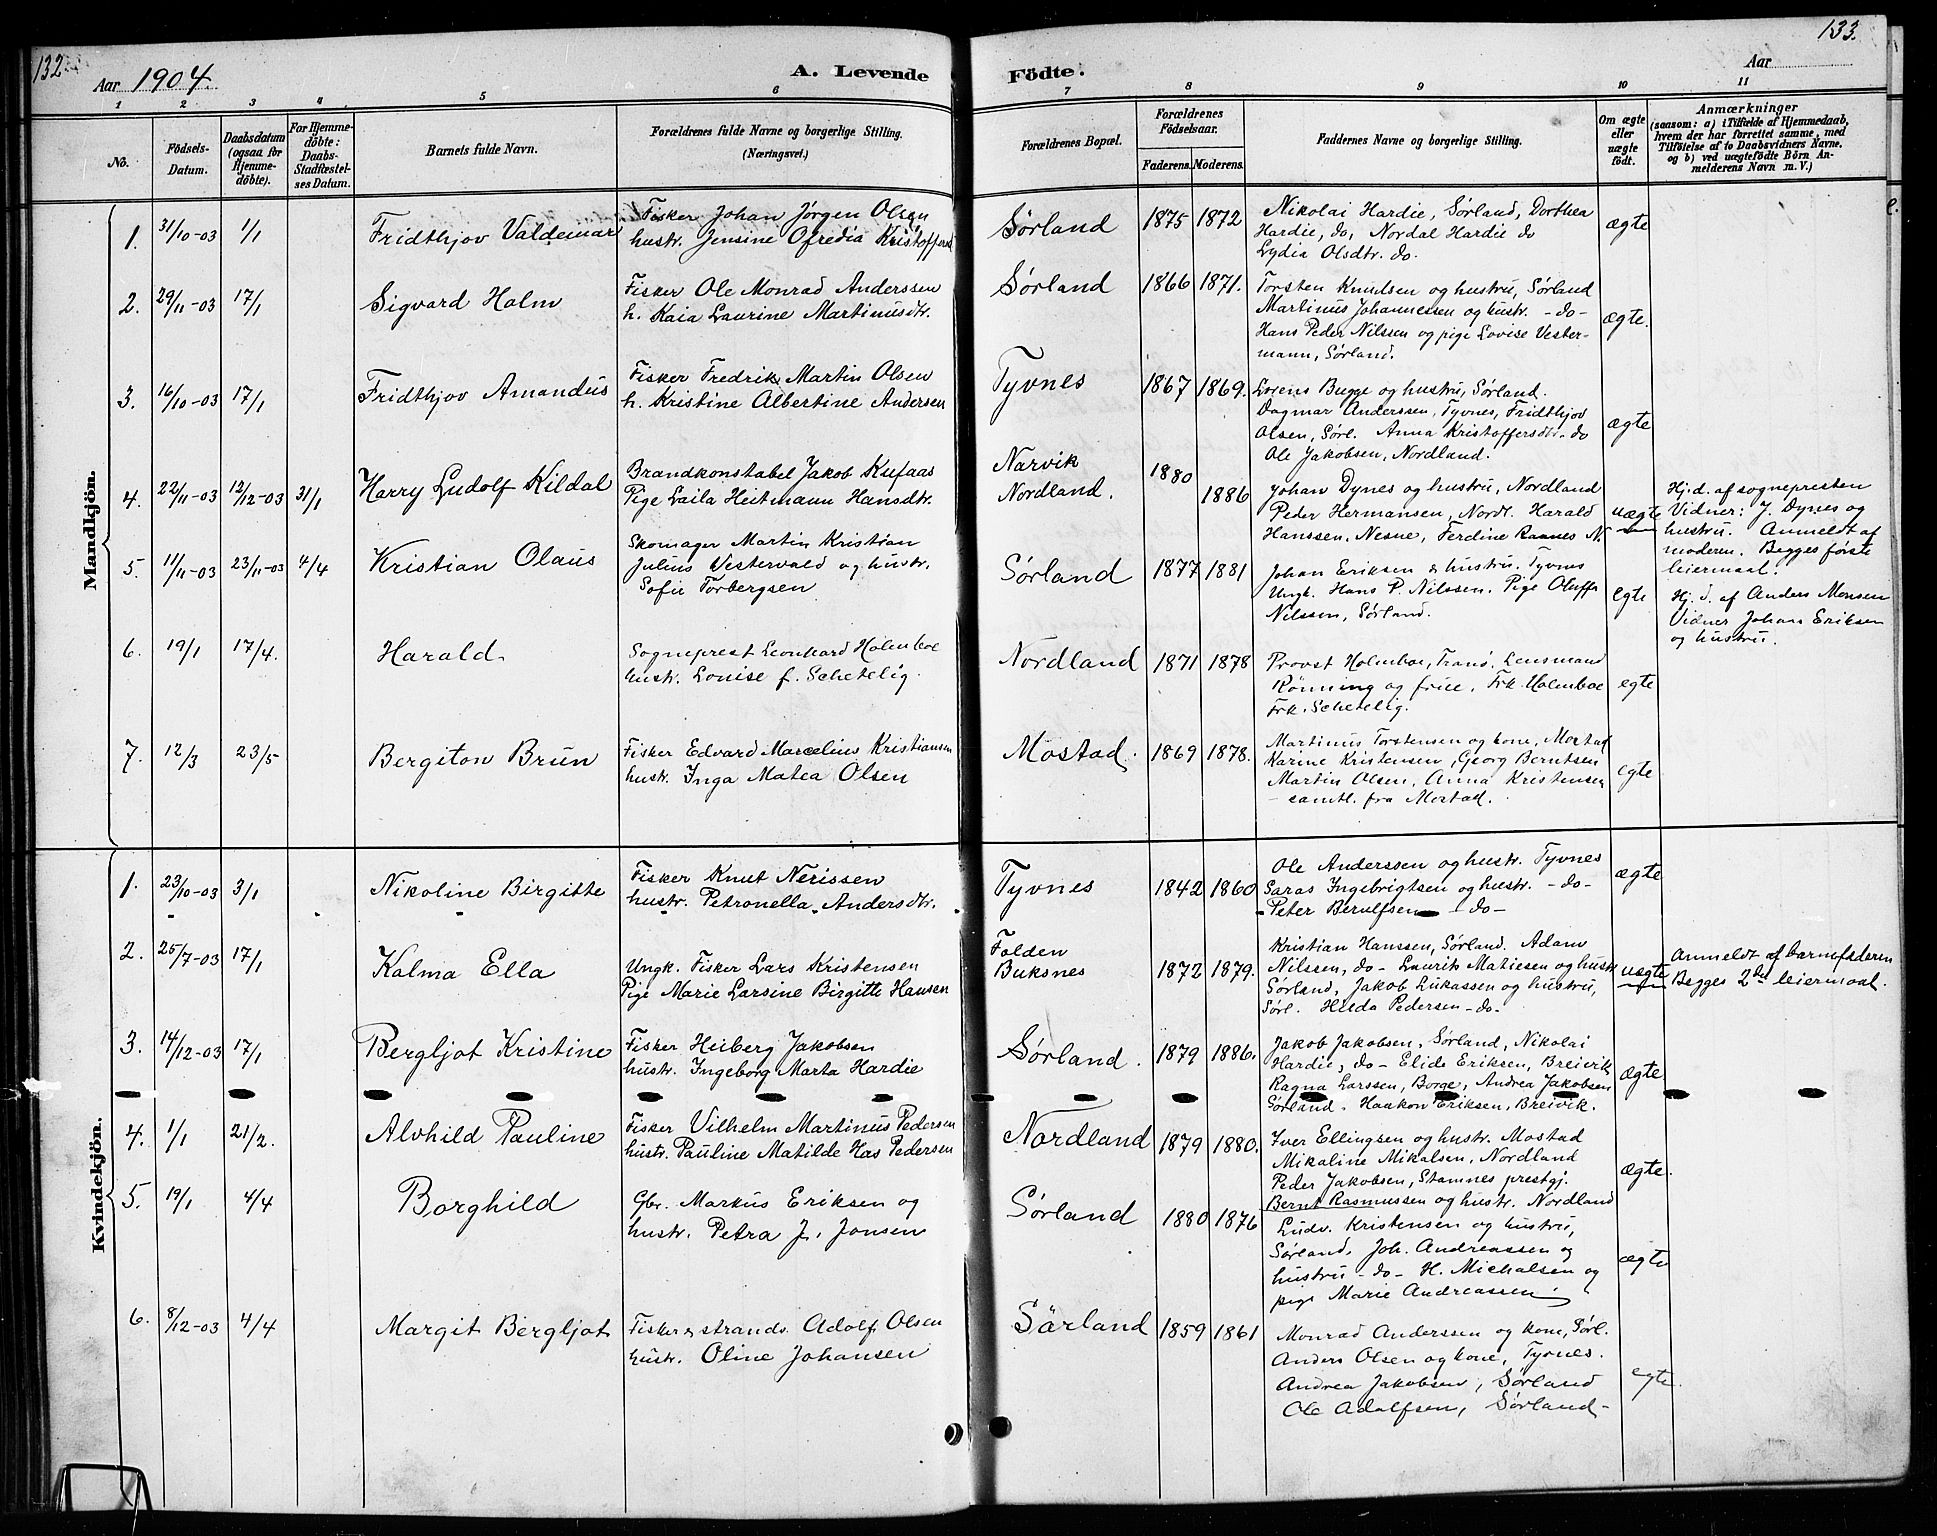 132
Aar 1904.
A. Levende
Födte.
133.
Aar
1 2 3 4 5 6 7 8 9 10 11
No.
Födsels-
Datum.
Daabsdatum
(ogsaa for
Hjemme-
döbte).
For Hjemme-
döbte:
Daabs-
Stadfæstel-
ses Datum.
Barnets fulde Navn.
Forældrenes fulde Navne og borgerlige Stilling.
(Næringsvei.)
Forældrenes Bopæl.
Forældrenes
Födselsaar.
Faderens. Moderens.
Faddernes Navne og borgerlige Stilling.
Om ægte
eller
uægte
födt.
Anmærkninger
(saasom: a) i Tilfælde af Hjemmedaab,
hvem der har forrettet samme, med
Tilföielse af to Daabsvidners Navne.
og b) ved uægtefödte Börn An-
melderens Navn m. V.)
Mandkjön.
1. 31/10-03 1/1 Fridthjov Valdemar
Fisker Johan Jørgen Olsen
hustr. Jensine Ofredia Kristoffersd
Sørland 1875 1872
Nikolai Hardie, Sørland, Dorthea
Hardie, do, Nordal Hardie do
Lydia Olsdtr. do.
ægte
2. 29/11-03 17/1 Sigvard Holm
Fisker Ole Monrad Anderssen
h. Kaia Laurine Martinusdtr.
Sørland 1866 1871.
Torsten Knudsen og hustru, Sørland
Martinus Johannessen og hustr. -do-
Hans Peder Nilssen og pige Lovise Vester-
mann, Sørland.
ægte.
3. 16/10-03 17/1 Fridthjov Amandus
Fisker Fredrik Martin Olsen
h. Kristine Albertine Andersen
Tyvnes 1867 1869.
Lorens Bugge og hustru, Sørland.
Dagmar Anderssen, Tyvnes, Fridthjov
Olsen, Sørl. Anna Kristoffersdtr. do
Ole Jakobsen, Nordland.
ægte
4. 22/11-03 12/12-03 31/1 Harry Ludolf Kildal
Brandkonstabel Jakob Kufaas
Pige Laila Heitmann Hansdtr.
Narvik
Nordland. 1880 1886
Johan Dynes og hustru, Nordland
Peder Hermansen, Nordl. Harald
Hanssen, Nesne, Ferdine Raanes N.
uægte
Hj.d. af sognepresten
Vidner: J. Dynes og
hustru. Anmeldt af
moderen. Begges første
leiermaal.
5. 11/11-03 23/11-03 4/4 Kristian Olaus
Skomager Martin Kristian
Julius Vestervald og hustr.
Sofie Torbergsen
Sørland 1877 1881
Johan Eriksen & hustru. Tyvnes
Ungk. Hans P. Nilssen. Pige Oluffa
Nilssen, Sørland.
egte
Hj. d. af Anders Monsen
Vidner Johan Eriksen
og hustru.
6. 19/1 17/4. Harald
Sogneprest Leonhard Holmboe
hustr. Louise f. Schetelig.
Nordland 1871 1878
Provst Holmboe, Tranø. Lensmand
Rønning og frue, Frk. Holmboe
Frk. Schetelig.
egte
7. 12/3 23/5 Bergiton Brun
Fisker Edvard Marcelius Kristiansen
hustr. Inga Matea Olsen
Mostad. 1869 1878.
Martinus Torstensen og kone, Mostad
Karine Kristensen, Georg Berntsen
Martin Olsen, Anna Kristensen
- samtl. fra Mostad.
egte
Kvindekjön.
1. 23/10-03 3/1 Nikoline Birgitte
Fisker Knut Nerissen
hustr. Petronella Andersdtr.
Tyvnes 1842 1860
Ole Anderssen og hustr. Tyvnes
Saras Ingebrigtsen og hustr. -do-
Peter Berulfsen - do-
ægte
2. 25/7-03 17/1 Kalma Ella
Ungk. Fisker Lars Kristensen
Pige Marie Larsine Birgitte Hansen
Folden
Buksnes 1872 1879.
Kristian Hanssen, Sørland. Adam
Nilssen, do- Laurits Matiesen og hustr
Sørland, Jakob Lukassen og hustru,
Sørl. Hilda Pedersen -do-
uægte
Anmeldt af barnefaderen
Begges 2det leiermaal.
3. 14/12-03 17/1 Bergljot Kristine
Fisker Heiberg Jakobsen
hustr. Ingeborg Marta Hardie
Sørland. 1879 1886.
Jakob Jakobsen, Sørland, Nikolai
Hardie, do- Elide Eriksen, Breivik
Ragna Larssen, Borge, Andrea Jakobsen
Sørland. Haakon Eriksen, Breivik.
ægte
4. 1/1 21/2. Alvhild Pauline
Fisker Vilhelm Martinus Pedersen
hustr. Pauline Matilde Has Pedersen
Nordland 1879 1880.
Iver Ellingsen og hustr. Mostad
Mikaline Mikalsen, Nordland
Peder Jakobsen, Stamnes prestgj.
Bernt Rasmussen og hustr. Nordland
ægte.
5. 19/1 4/4 Borghild
Gbr. Markus Eriksen og
hustr. Petra J. Jonsen
Sørland 1880 1876
Ludv. Kristensen og hustru,
Sørland, Joh. Andreassen og
hustru - do- H. Michalsen og
pige Marie Andreassen
ægte
6. 8/12-03 4/4 Margit Bergljot
Fisker & strands. Adolf Olsen
hustr. Oline Johansen
Sørland 1859 1861
Monrad Anderssen og kone, Sørl.
Anders Olsen og kone, Tyvnes.
Andrea Jakobsen, Sørland
Ole Adolfsen, Sørland-
egte.